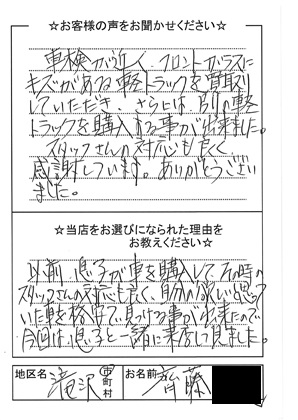 ☆お客様の声をお聞かせください☆
車検が近く、フロントガラスに
キズがある軽トラックを買取り
していただき、さらには、別の軽
トラックを購入する事が出来ました。
スタッフさんの対応も良く
感謝しています。ありがとうござい
ました。
☆当店をお選びになられた理由を
お教えください☆
以前、息子が車を購入して、その時の
スタッフさんの対応も良く、自分の欲しいと思って
いた車を格安で、見つける事が出来たので
今回は、息子と一緒に来店して見ました。
地区名 滝沢 市町村 お名前 齊藤